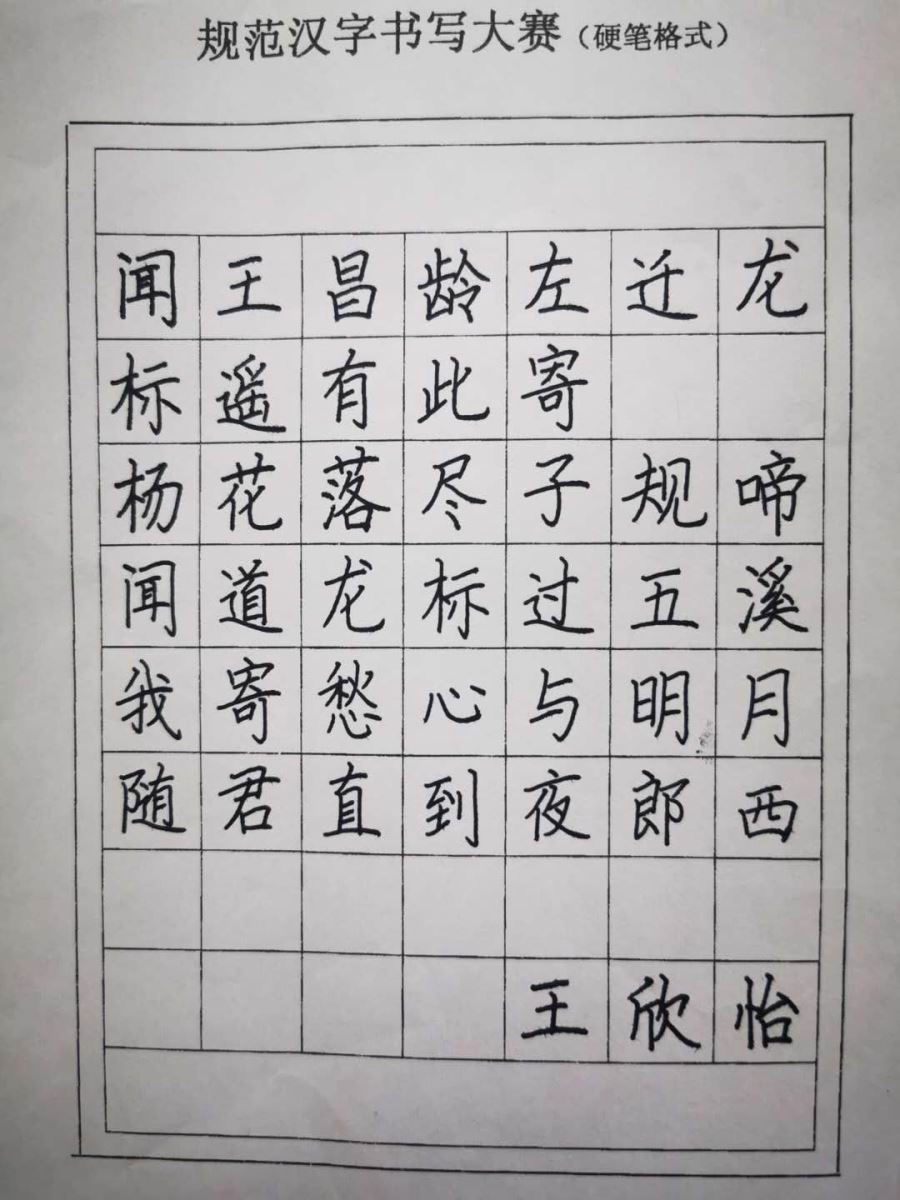 规范汉字书写大赛（硬笔格式）
闻王昌龄左迁龙
标遥有此寄
杨花落尽子规啼
闻道龙标过五溪
我寄愁心与明月
随君直到夜郎西
王欣怡